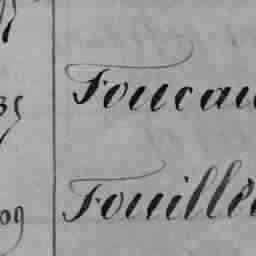 35 Foucau
09 Fouillé